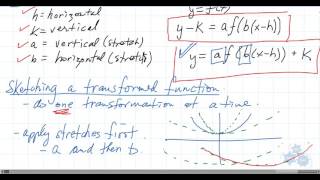 h = horizontal
K = vertical
a = vertical (stretch)
b = horizontal (stretch)
y - K = a f(b(x-h))
y = a f(b(x-h)) + K
Sketching a transformed function
- do one transformation at a time.
- apply stretches first
- a and then b.